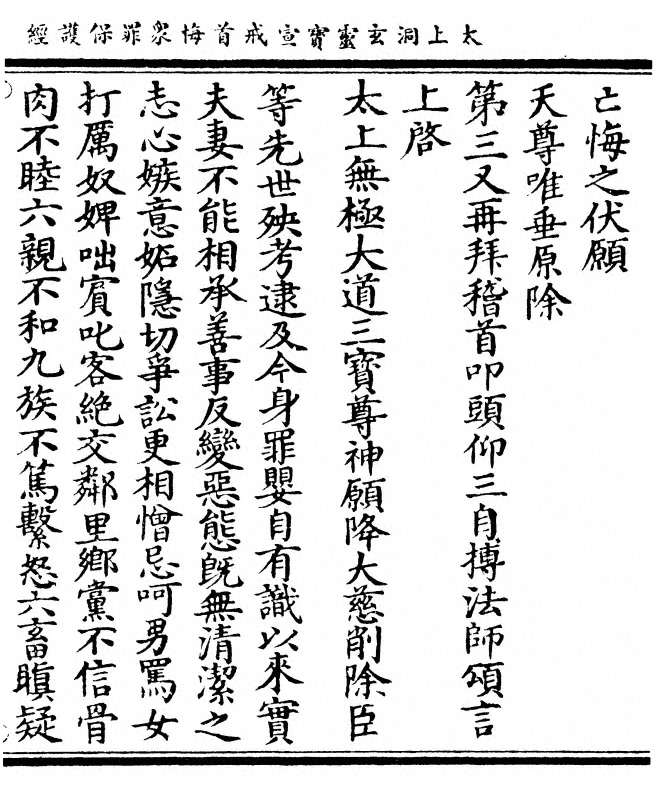 太上洞玄靈寶宣戒首悔衆罪保護經
亡悔之伏願
天尊唯垂原除
第三又再拜稽首叩頭仰三自搏法師頌言
上啓
太上無極大道三寶尊神願降大慈削除臣
等先世殃考逮及今身罪嬰自有識以來實
夫妻不能相承善事反變惡態旣無清潔之
志心嫉意妬隱切爭訟更相憎忌呵男罵女
打厲奴婢咄賓叱客絶交鄰里鄉黨不信骨
肉不睦六親不和九族不篤繫怒六畜瞋疑